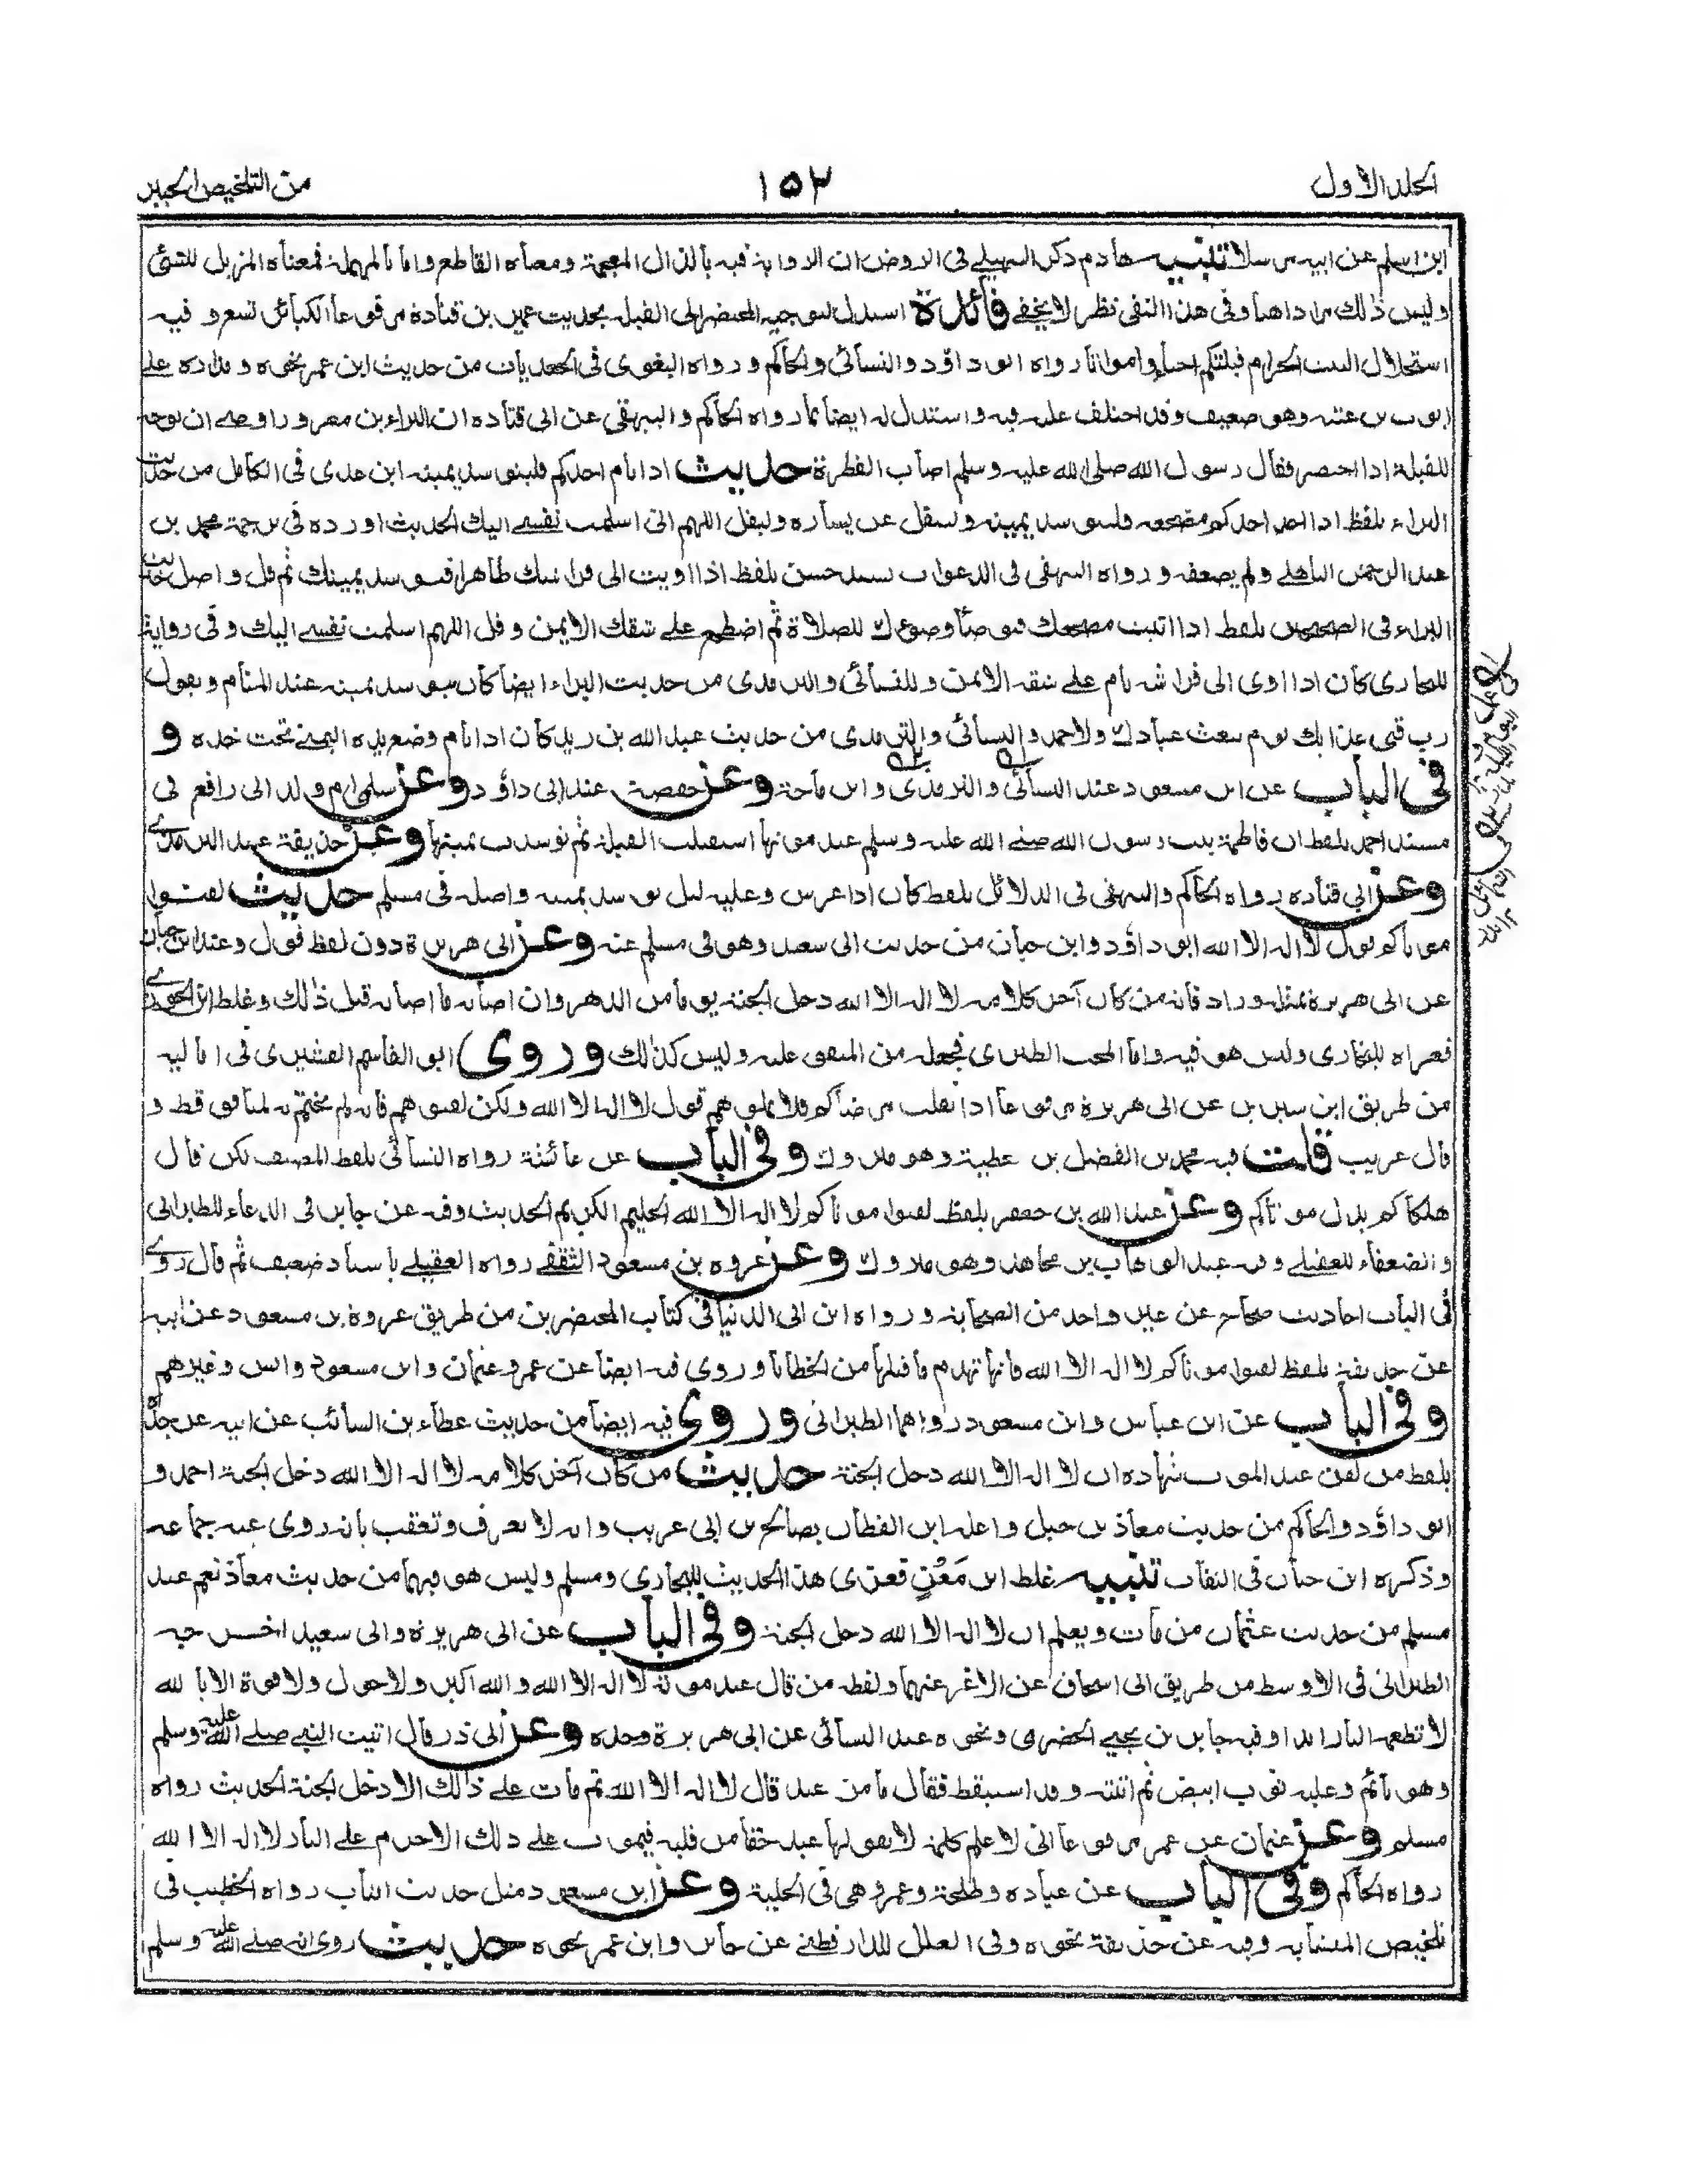 الجلد الاول
١٥٢
من التلخيص الحبير
ابن اسلم عن ابيه مرسلا تنبيه هاذم ذكر السهيلي في الروض ان الرواية فيه بالذال المعجمة ومعناه القاطع واما بالمهملة فمعناه المزيل للشئ
وليس ذلك مرادا هنا وفي هذا النفي نظر لا يخفى فائدة استدل لتوجيه المحتضر الى القبلة بحديث عمير بن قتادة مرفوعا الكبائر تسع وفيه
استحلال البيت الحرام قبلتكم احياء وامواتا رواه ابو داؤد والنسائي والحاكم ورواه البغوي في الجعديات من حديث ابن عمر نحوه ومداره على
ايوب بن عتبة وهو ضعيف وقد اختلف عليه فيه واستدل له ايضا بما رواه الحاكم والبيهقي عن ابي قتادة ان البراء بن معرور اوصى ان يوجه
للقبلة اذا احتضر فقال رسول الله صلى الله عليه وسلم اصاب الفطرة حديث اذا نام احدكم فليتوسد يمينه ابن عدي في الكامل من حديث
البراء بلفظ اذا اخذ احدكم مضجعه فليتوسد يمينه وليتفل عن يساره وليقل اللهم اني اسلمت نفسي اليك الحديث اورده في ترجمة محمد بن
عبد الرحمن الباهلي ولم يضعفه ورواه البيهقي في الدعوات بسند حسن بلفظ اذا اويت الى فراشك طاهرا فتوسد يمينك ثم قل واصل حديث
البراء في الصحيحين بلفظ اذا اتيت مضجعك فتوضأ وضوءك للصلاة ثم اضطجع على شقك الايمن وقل اللهم اسلمت نفسي اليك وفي رواية
للبخاري كان اذا اوى الى فراشه نام على شقه الايمن وللنسائي والترمذي من حديث البراء ايضا كان يتوسد يمينه عند المنام ويقول
رب قني عذابك يوم تبعث عبادك ولاحمد والنسائي والترمذي من حديث عبد الله بن زيد كان اذا نام وضع يده اليمنى تحت خده و
في الباب عن ابن مسعود عند النسائي والترمذي وابن ماجة وعن حفصة عند ابي داؤد وعن سلمى ام ولد ابي رافع في
مسند احمد بلفظ ان فاطمة بنت رسول الله صلى الله عليه وسلم عند موتها استقبلت القبلة ثم توسدت يمينها وعن حذيفة عند الترمذي
وعن ابي قتادة رواه الحاكم والبيهقي في الدلائل بلفظ كان اذا عرس وعليه ليل توسد يمينه واصله في مسلم حديث لقنوا
موتاكم قول لا اله الا الله ابو داؤد وابن حبان من حديث ابي سعيد وهو في مسلم عنه وعن ابي هريرة دون لفظ قول وعند ابن حبان
عن ابي هريرة بمثله وزاد فانه من كان آخر كلامه لا اله الا الله دخل الجنة يوما من الدهر وان اصابه ما اصابه قبل ذلك وغلط ابن الجوزي
فعزاه للبخاري وليس هو فيه واما المحب الطبري فجعله من المتفق عليه وليس كذلك وروى ابو القاسم القشيري في اماليه
من طريق ابن سيرين عن ابي هريرة مرفوعا اذا ثقلت مرضاكم فلا تملوهم قول لا اله الا الله ولكن لقنوهم فانه لم يختم به لمنافق قط و
قال غريب قلت فيه محمد بن الفضل بن عطية وهو متروك وفي الباب عن عائشة رواه النسائي بلفظ المصنف لكن قال
هلكاكم بدل موتاكم وعن عبد الله بن جعفر بلفظ لقنوا موتاكم لا اله الا الله الحليم الكريم الحديث وفيه عن جابر في الدعاء للطبراني
والضعفاء للعقيلي وفيه عبد الوهاب بن مجاهد وهو متروك وعن عروة بن مسعود الثقفي رواه العقيلي باسناد ضعيف ثم قال روى
في الباب احاديث صحاح عن غير واحد من الصحابة ورواه ابن ابي الدنيا في كتاب المحتضرين من طريق عروة بن مسعود عن ابيه
عن حذيفة بلفظ لقنوا موتاكم لا اله الا الله فانها تهدم ما قبلها من الخطايا وروى فيه ايضا عن عمر وعثمان وابن مسعود وانس وغيرهم
وفي الباب عن ابن عباس وابن مسعود رواهما الطبراني وروى فيه ايضا من حديث عطاء بن السائب عن ابيه عن جده
بلفظ من لقن عند الموت شهادة ان لا اله الا الله دخل الجنة حديث من كان آخر كلامه لا اله الا الله دخل الجنة احمد و
ابو داؤد والحاكم من حديث معاذ بن جبل واعله ابن القطان بصالح بن ابي عريب وانه لا يعرف وتعقب بانه روى عنه جماعة
وذكره ابن حبان في الثقات تنبيه غلط ابن مَعْنٍ فعزى هذا الحديث للبخاري ومسلم وليس هو فيهما من حديث معاذ نعم عند
مسلم من حديث عثمان من مات ويعلم ان لا اله الا الله دخل الجنة وفي الباب عن ابي هريرة وابي سعيد اخرجه
الطبراني في الاوسط من طريق ابي اسحاق عن الاغر عنهما ولفظه من قال عند موته لا اله الا الله والله اكبر ولا حول ولا قوة الا بالله
لا تطعمه النار ابدا وفيه جابر بن يحيى الحضرمي ونحوه عند النسائي عن ابي هريرة وحده وعن ابي ذر قال اتيت النبي صلى الله عليه وسلم
وهو نائم وعليه ثوب ابيض ثم اتيته وقد استيقظ فقال ما من عبد قال لا اله الا الله ثم مات على ذلك الا دخل الجنة الحديث رواه
مسلم وعن عثمان عن عمر مرفوعا اني لا علم كلمة لا يقولها عبد حقا من قلبه فيموت على ذلك الا حرم على النار لا اله الا الله
رواه الحاكم وفي الباب عن عبادة وطلحة وعمر وهي في الحلية وعن ابن مسعود مثل حديث الباب رواه الخطيب في
تلخيص المتشابه وفيه عن حذيفة نحوه وفي العلل للدارقطني عن جابر وابن عمر نحوه حديث روى انه صلى الله عليه وسلم